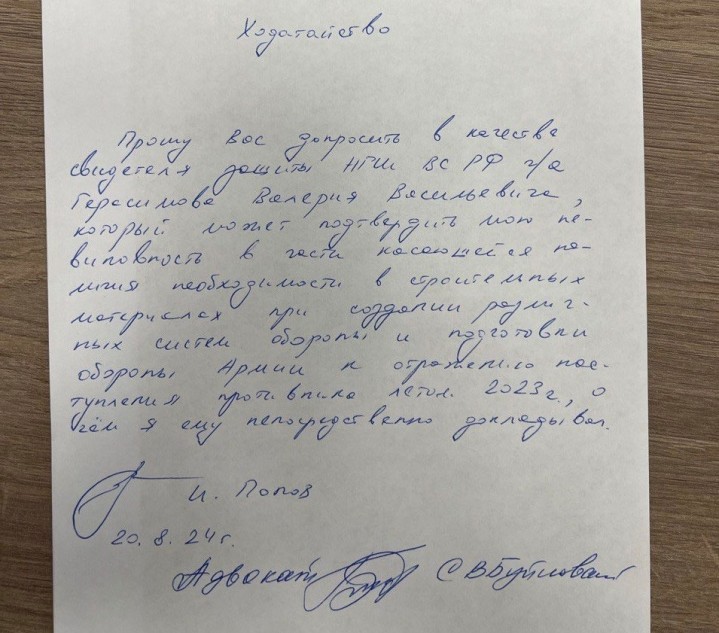 Ходатайство
Прошу Вас допросить в качестве
свидетеля защиты НГШ ВС РФ г/а
Герасимова Валерия Васильевича,
который может подтвердить мою не-
виновность в части касающейся на-
личия необходимости в строительных
материалах при создании различ-
ных систем обороны и подготовки
обороны Армии к отражению нас-
тупления противника летом 2023г., о
чём я ему непосредственно докладывал.
И. Попов
20.8.24г.
Адвокат С В Буйновский